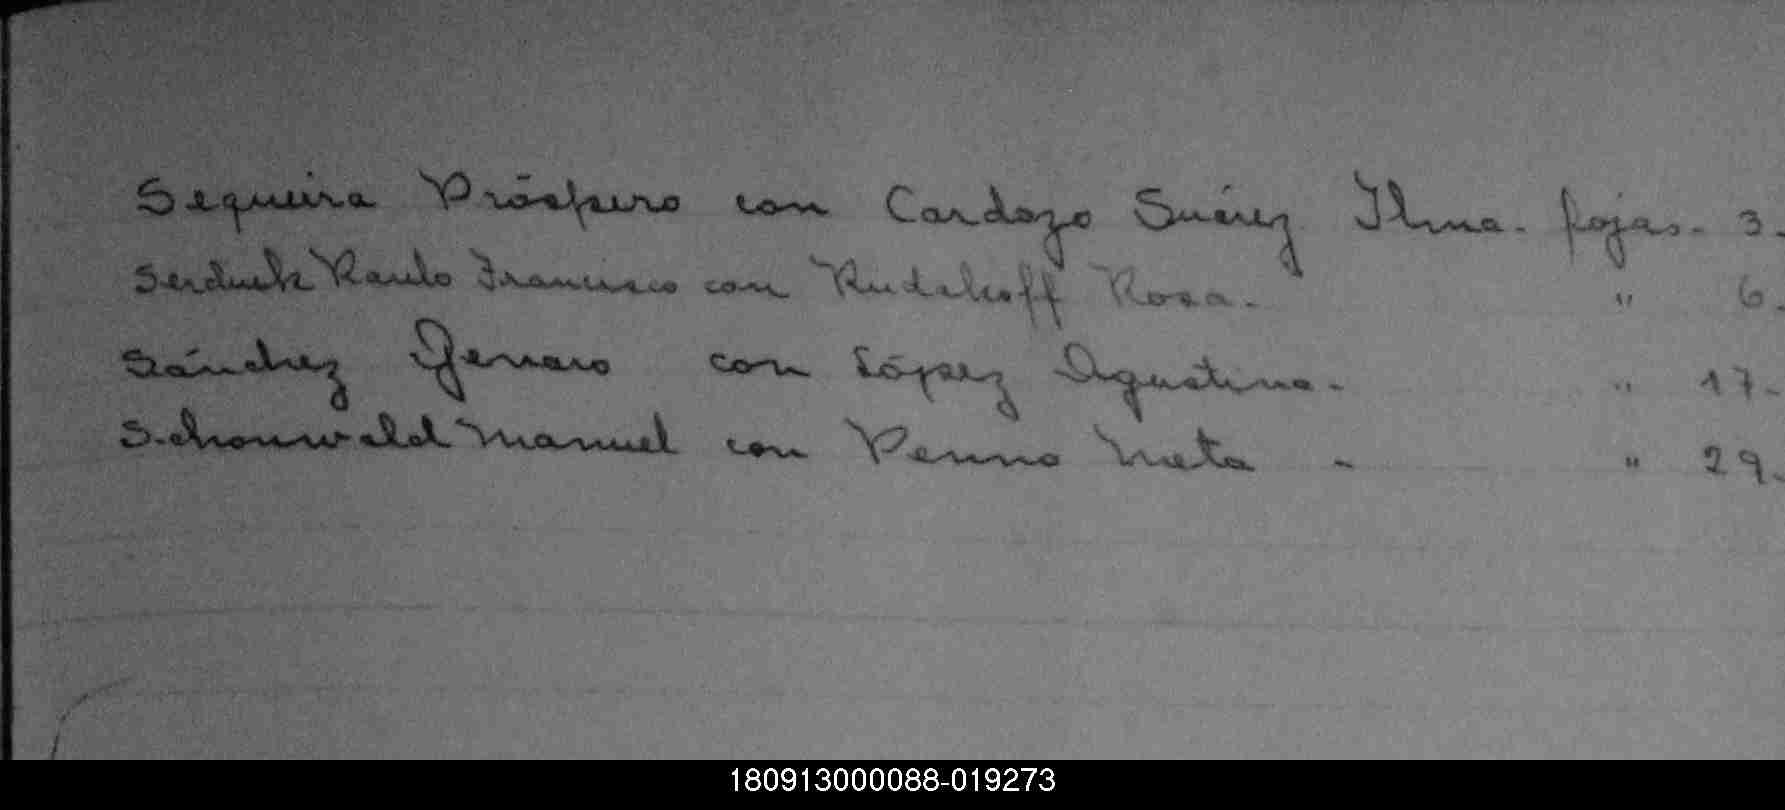 Sequeira Próspero con Cardozo Suárez Ilma. fojas. 3.
Serduck Raulo Francisco con Rudakoff Rosa. " 6.
Sánchez Genaro con López Agustina. " 17.
Schonwald Manuel con Penno Meta - " 29.
180913000088-019273